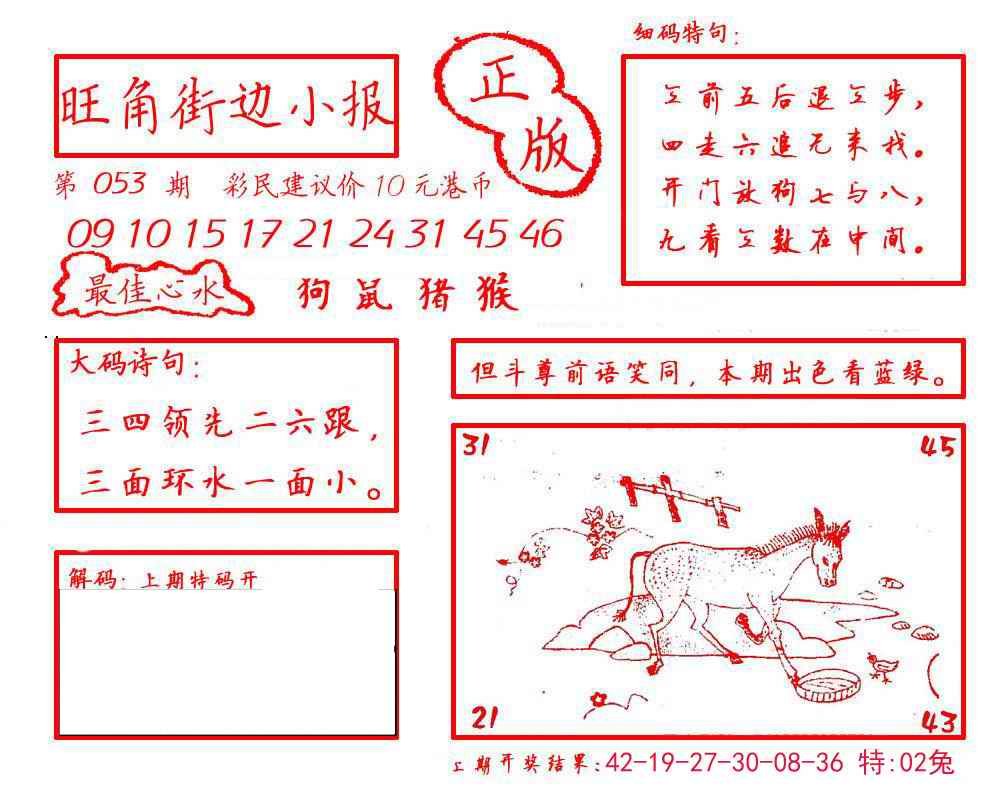 旺角街边小报
正版
第 053 期 彩民建议价10元港币
09 10 15 17 21 24 31 45 46
最佳心水
狗 鼠 猪 猴
细码特句：
三前五后退三步，
四走六追无来找。
开门放狗七与八，
九看三数在中间。
大码诗句：
三四领先二六跟，
三面环水一面小。
但斗尊前语笑同，本期出色看蓝绿。
解码：上期特码开
31
45
21
43
上期开奖结果：42-19-27-30-08-36 特:02兔